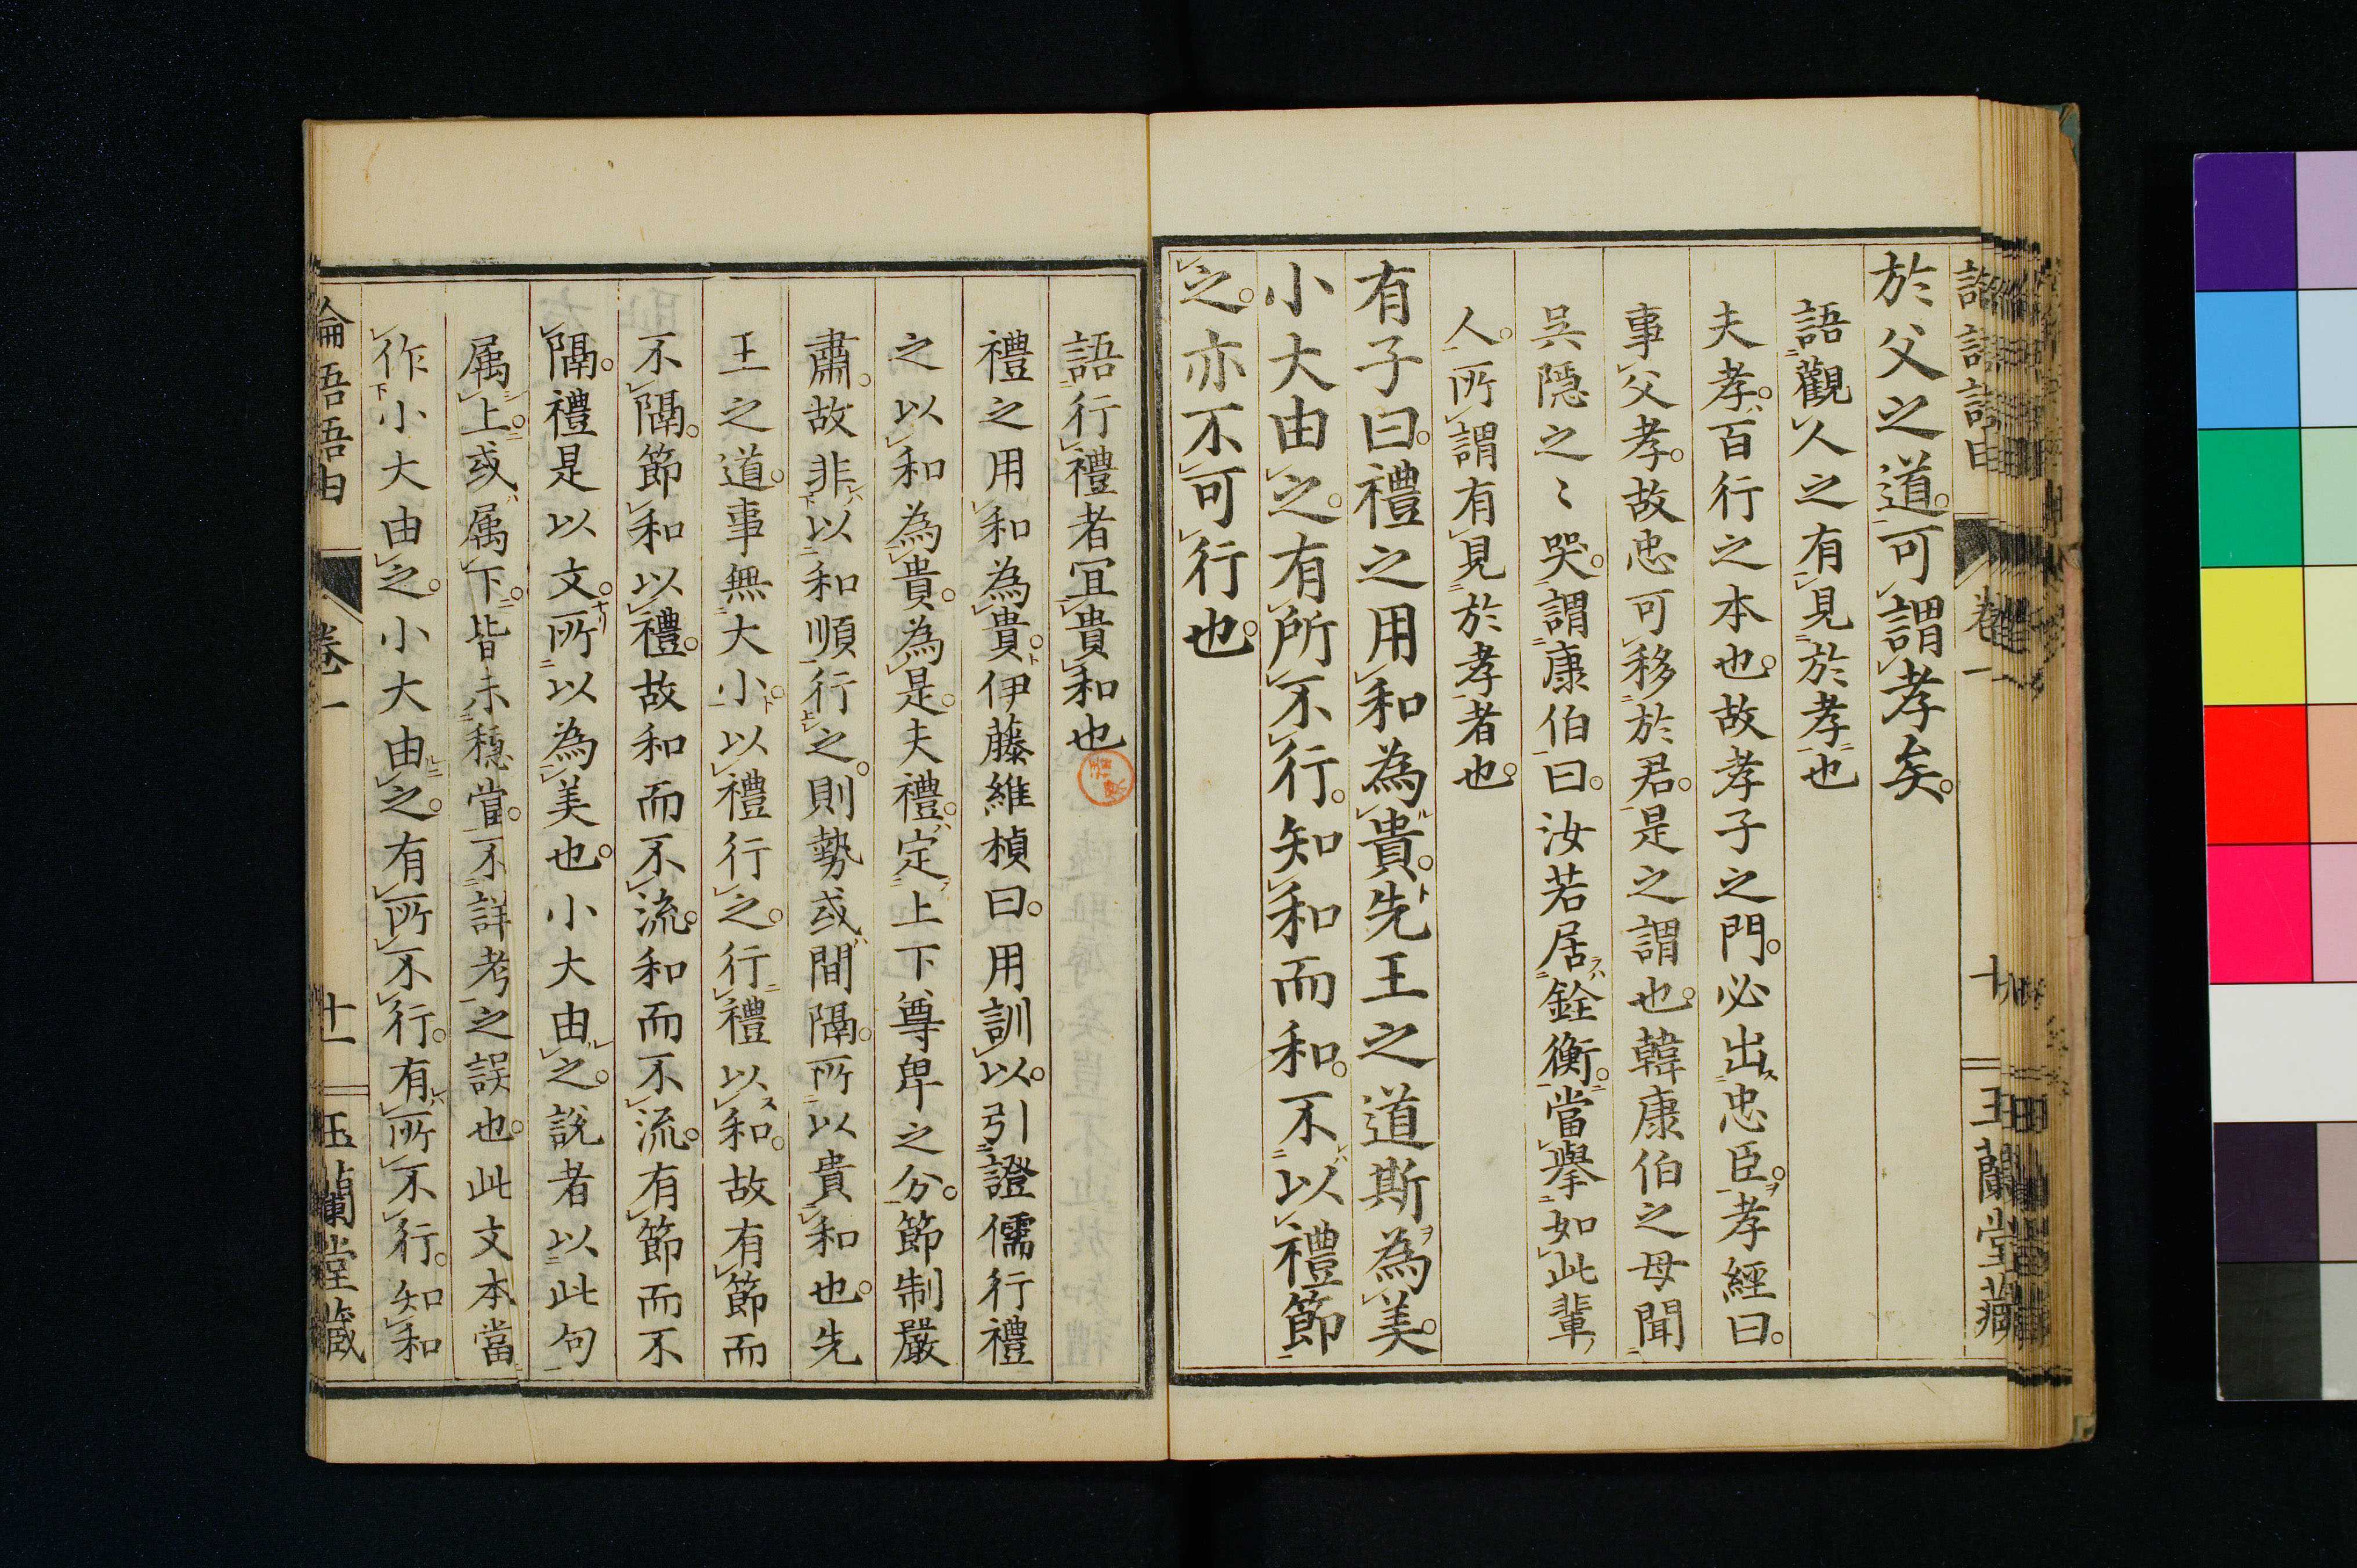 於父之道可謂孝矣
語觀人之有見於孝也
夫孝百行之本也故孝子之門必出忠臣孝經曰
事父孝故忠可移於君是之謂也韓康伯之母聞
吳隱之〻哭謂康伯曰汝若居銓衡當擧如此輩
人所謂有見於孝者也
有子曰禮之用和為貴先王之道斯為美
小大由之有所不行知和而和不以禮節
之亦不可行也
語行禮者冝貴和也
禮之用和為貴伊藤維楨曰用訓以引證儒行禮
之以和為貴為是夫禮定上下尊卑之分節制嚴
肅故非以和順行之則勢或間隔所以貴和也先
王之道事無大小以禮行之行禮以和故有節而
不隔節和以禮故和而不流和而不流有節而不
隔禮是以文所以為美也小大由之說者以此句
属上或属下皆未穩當不詳考之誤也此文本當
作小大由之小大由之有所不行有所不行知和
論語語由 卷一 十一 玉蘭堂藏